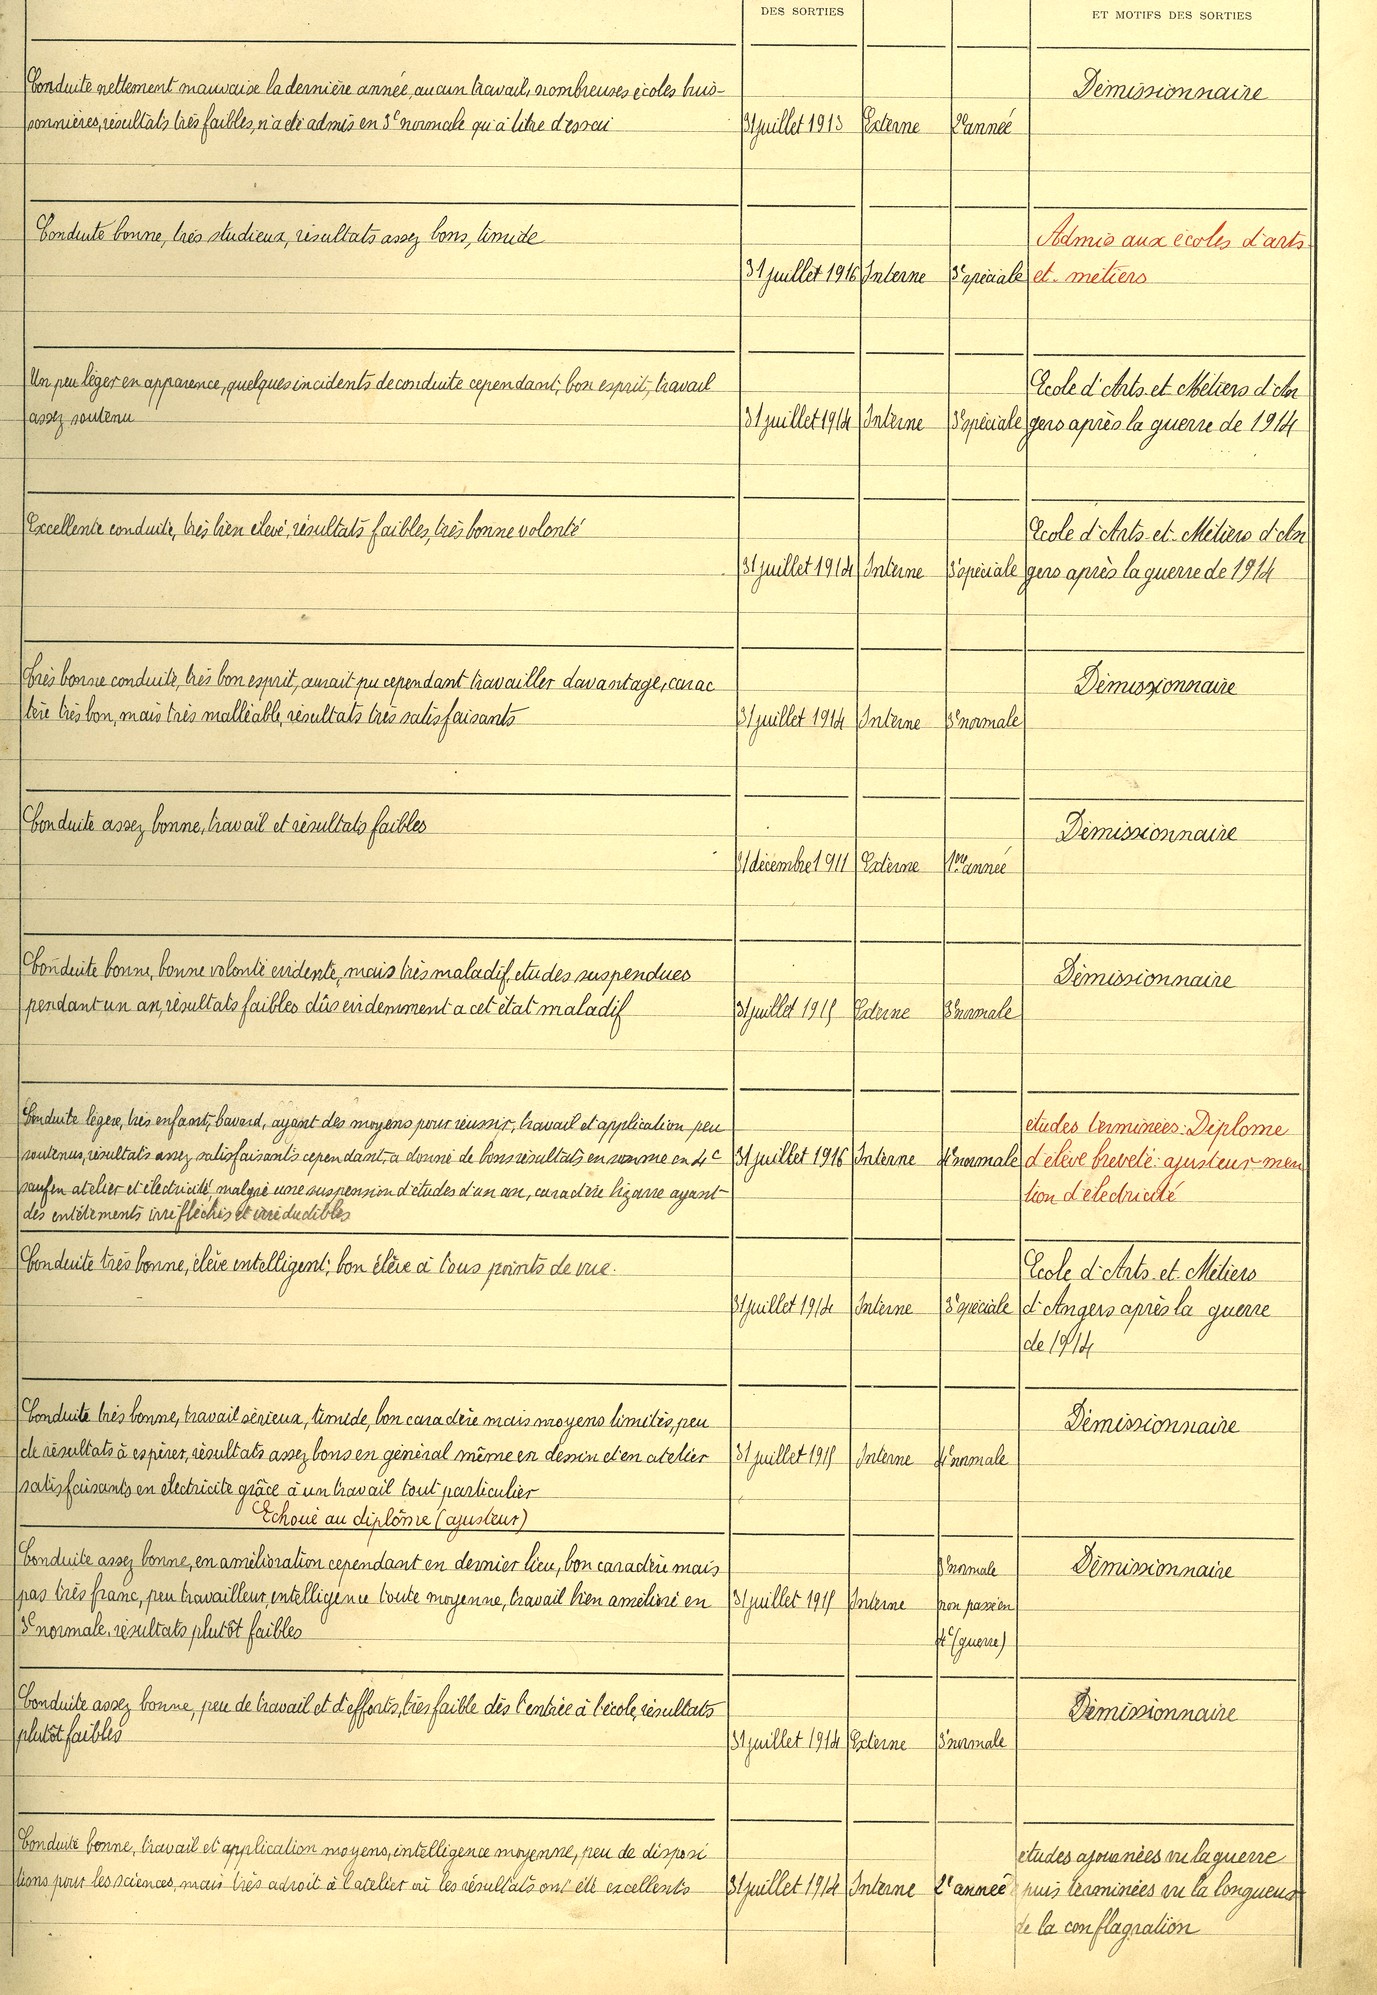 DES SORTIES
ET MOTIFS DES SORTIES
Conduite nettement mauvaise la dernière année, aucun travail, nombreuses écoles buis-
Démissionnaire
sonnières, résultats très faibles, n'a été admis en 3e normale qu'à titre d'essai
31 juillet 1913
Externe
2e année
Conduite bonne, très studieux, résultats assez bons, timide
Admis aux écoles d'arts
31 juillet 1916
Interne
3e spéciale
et métiers
Un peu léger en apparence, quelques incidents de conduite cependant, bon esprit, travail
Ecole d'Arts et Métiers d'An
assez soutenu
31 juillet 1914
Interne
3e spéciale
gers après la guerre de 1914
Excellente conduite, très bien élevé, résultats faibles, très bonne volonté
Ecole d'Arts et Métiers d'An
31 juillet 1914
Interne
3e spéciale
gers après la guerre de 1914
Très bonne conduite, très bon esprit, aurait pu cependant travailler davantage, carac
Démissionnaire
tère très bon, mais très malléable, résultats très satisfaisants
31 juillet 1914
Interne
3e normale
Conduite assez bonne, travail et résultats faibles
Démissionnaire
31 décembre 1911
Externe
1ère année
Conduite bonne, bonne volonté evidente, mais très maladif, etudes suspendues
Démissionnaire
pendant un an, résultats faibles dûs evidemment a cet état maladif
31 juillet 1915
Externe
3e normale
Conduite légère, très enfant, bavard, ayant des moyens pour réussir, travail et application peu
études terminées. Diplome
soutenus, résultats assez satisfaisants cependant, a donné de bons résultats en somme en 4e
31 juillet 1916
Interne
4e normale
d'élève breveté: ajusteur men
sauf en atelier et électricité, malgré une suspension d'études d'un an, caractère bizarre ayant
tion d'électricité
des entêtements irréfléchis et irréductibles
Conduite très bonne, élève intelligent, bon élève à tous points de vue.
Ecole d'Arts et Métiers
31 juillet 1914
Interne
3e spéciale
d'Angers après la guerre
de 1914
Conduite très bonne, travail sérieux, timide, bon caractère mais moyens limités, peu
Démissionnaire
de résultats à espérer, résultats assez bons en général même en dessin et en atelier
31 juillet 1915
Interne
4e normale
satisfaisants en électricité grâce à un travail tout particulier
Echoué au diplôme (ajusteur)
Conduite assez bonne, en amélioration cependant en dernier lieu, bon caractère mais
3e normale
Démissionnaire
pas très franc, peu travailleur, intelligence toute moyenne, travail bien amélioré en
31 juillet 1915
Interne
non passé en
3e normale, résultats plutôt faibles
4e (guerre)
Conduite assez bonne, peu de travail et d'efforts, très faible dès l'entrée à l'école, résultats
Démissionnaire
plutôt faibles
31 juillet 1914
Externe
3e normale
Conduite bonne, travail et application moyens, intelligence moyenne, peu de disposi
études ajournées vu la guerre
tions pour les sciences, mais très adroit à l'atelier où les résultats ont été excellents
31 juillet 1914
Interne
2e année
puis terminées vu la longueur
de la conflagration